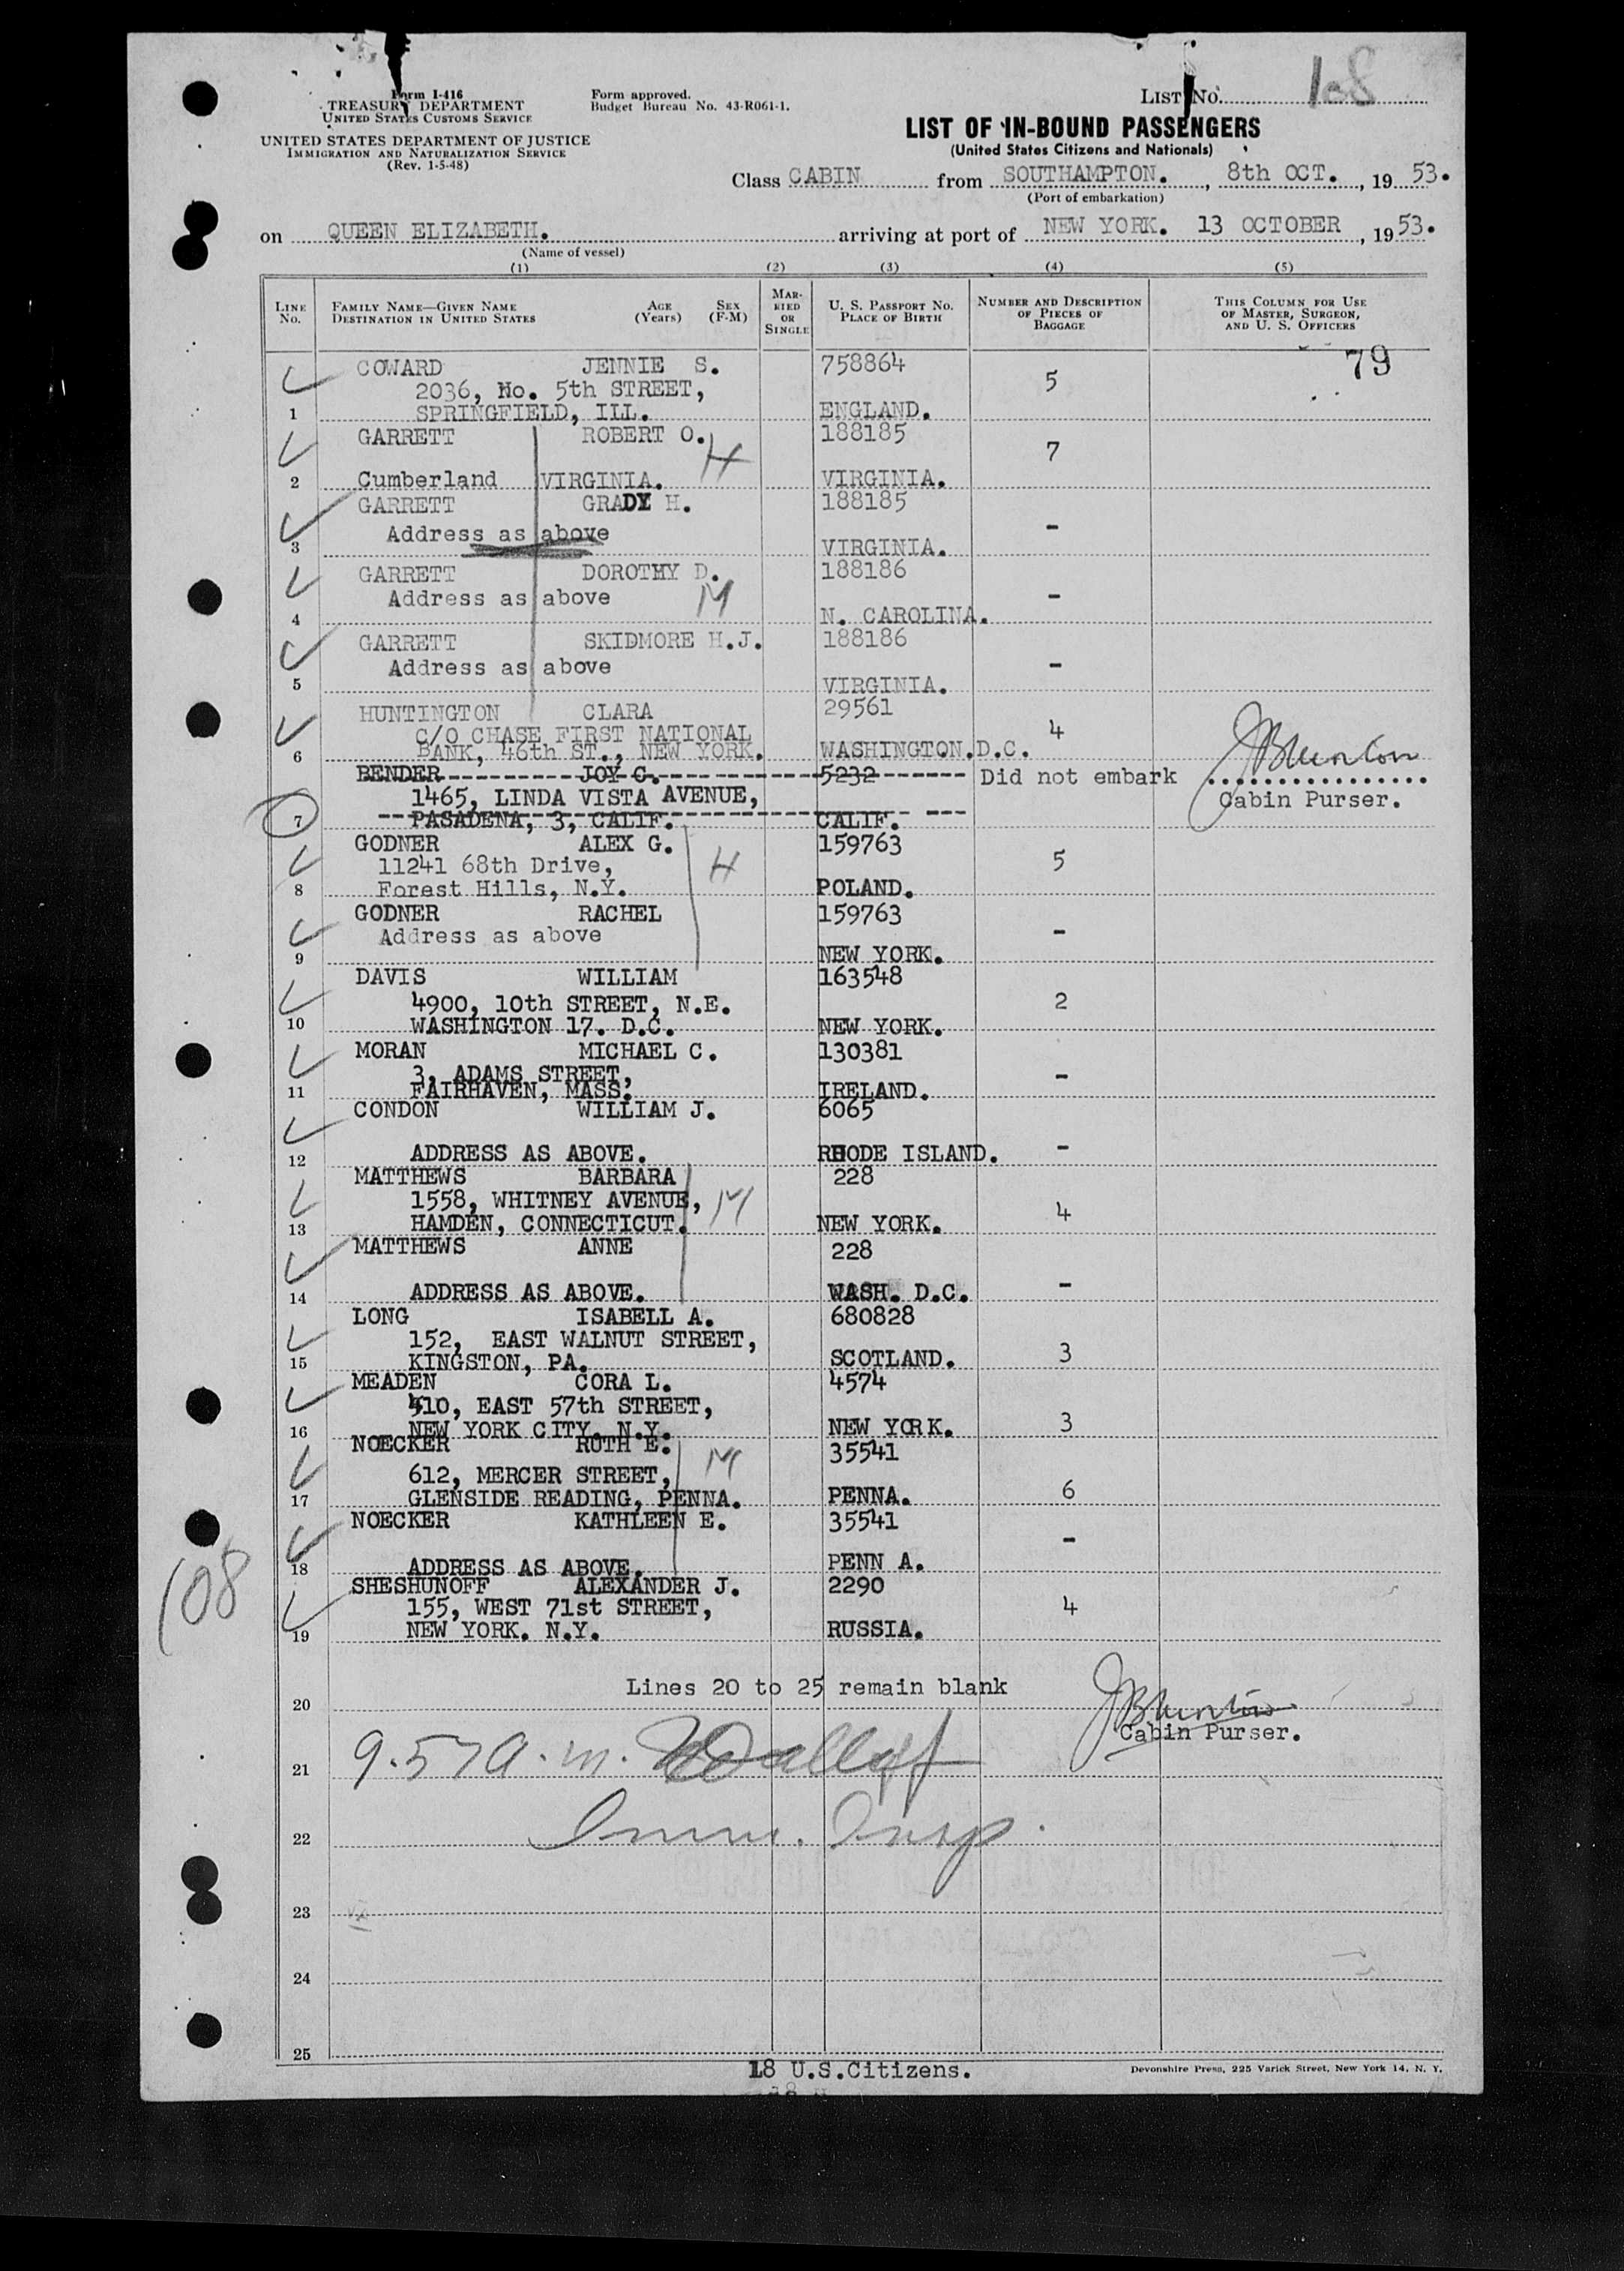 Form I-416
TREASURY DEPARTMENT
UNITED STATES CUSTOMS SERVICE
UNITED STATES DEPARTMENT OF JUSTICE
IMMIGRATION AND NATURALIZATION SERVICE
(Rev. 1-5-48)
Form approved.
Budget Bureau No. 43-R061-1.
LIST No. 108
LIST OF IN-BOUND PASSENGERS
(United States Citizens and Nationals)
Class CABIN from SOUTHAMPTON. , 8th OCT. , 19 53.
(Port of embarkation)
on QUEEN ELIZABETH. arriving at port of NEW YORK. 13 OCTOBER , 19 53.
(Name of vessel)
(1) (2) (3) (4) (5)
LINE No. FAMILY NAME—GIVEN NAME DESTINATION IN UNITED STATES AGE (Years) SEX (F-M) MARRIED OR SINGLE U. S. PASSPORT No. PLACE OF BIRTH NUMBER AND DESCRIPTION OF PIECES OF BAGGAGE THIS COLUMN FOR USE OF MASTER, SURGEON, AND U. S. OFFICERS
79
COWARD JENNIE S. 758864
2036, No. 5th STREET, 5
1 SPRINGFIELD, ILL. ENGLAND.
GARRETT ROBERT O. 188185
H 7
2 Cumberland VIRGINIA. VIRGINIA.
GARRETT GRADY H. 188185
Address as above -
3 VIRGINIA.
GARRETT DOROTHY D. 188186
Address as above M -
4 N. CAROLINA.
GARRETT SKIDMORE H.J. 188186
Address as above -
5 VIRGINIA.
HUNTINGTON CLARA 29561
C/O CHASE FIRST NATIONAL 4
6 BANK, 46th ST., NEW YORK. WASHINGTON.D.C.
BENDER JOY C. 5232 Did not embark
1465, LINDA VISTA AVENUE, Cabin Purser.
7 PASADENA, 3, CALIF. CALIF.
GODNER ALEX G. 159763
11241 68th Drive, H 5
8 Forest Hills, N.Y. POLAND.
GODNER RACHEL 159763
Address as above -
9 NEW YORK.
DAVIS WILLIAM 163548
4900, 10th STREET, N.E. 2
10 WASHINGTON 17. D.C. NEW YORK.
MORAN MICHAEL C. 130381
3, ADAMS STREET, -
11 FAIRHAVEN, MASS. IRELAND.
CONDON WILLIAM J. 6065
12 ADDRESS AS ABOVE. RHODE ISLAND. -
MATTHEWS BARBARA 228
1558, WHITNEY AVENUE, M 4
13 HAMDEN, CONNECTICUT. NEW YORK.
MATTHEWS ANNE 228
14 ADDRESS AS ABOVE. WASH. D.C. -
LONG ISABELL A. 680828
152, EAST WALNUT STREET, 3
15 KINGSTON, PA. SCOTLAND.
MEADEN CORA L. 4574
410, EAST 57th STREET,
16 NEW YORK CITY. N.Y. NEW YORK. 3
NOECKER RUTH E. 35541
612, MERCER STREET, M 6
17 GLENSIDE READING, PENNA. PENNA.
NOECKER KATHLEEN E. 35541
-
18 ADDRESS AS ABOVE. PENN A.
SHESHUNOFF ALEXANDER J. 2290
155, WEST 71st STREET, 4
19 NEW YORK. N.Y. RUSSIA.
108
Lines 20 to 25 remain blank
20
Cabin Purser.
21 9.57 a.m.
22 Imm. Insp.
23
24
25
18 U.S.Citizens.
Devonshire Press, 225 Varick Street, New York 14, N. Y.